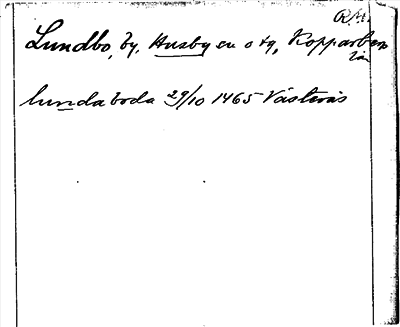 RA.
Lundbo, by, Husby sn o tg, Kopparbergs
län
lundaboda 29/10 1465 Västerås